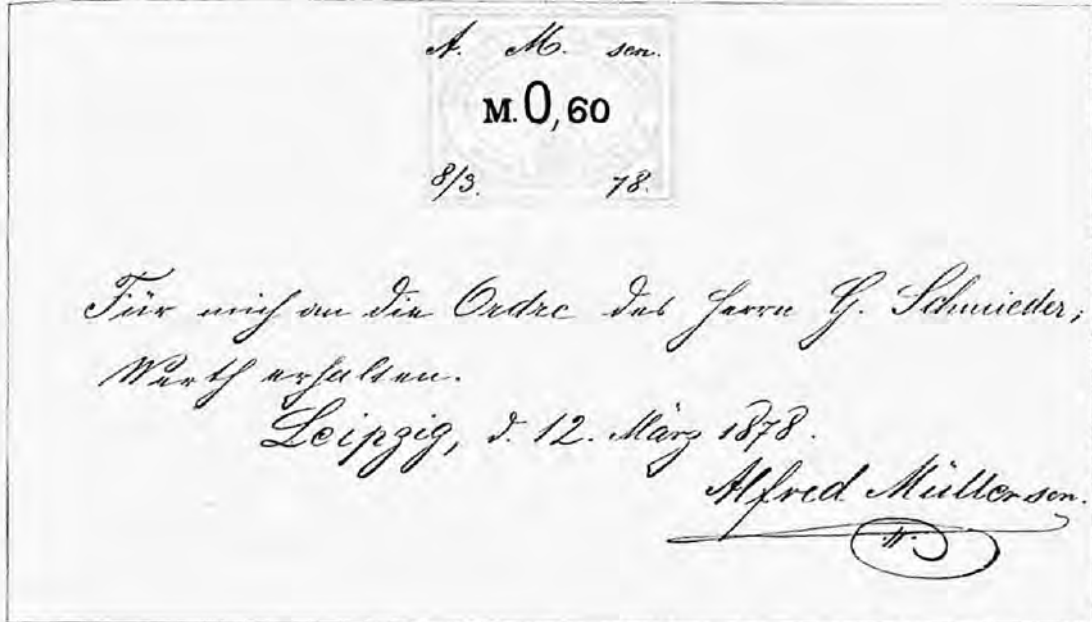 A. M. sen.
M. 0,60
8/3. 78.
Für mich an die Ordre des Herrn G. Schmieder;
Werth erhalten.
Leipzig, d. 12. März 1878.
Alfred Müller sen.